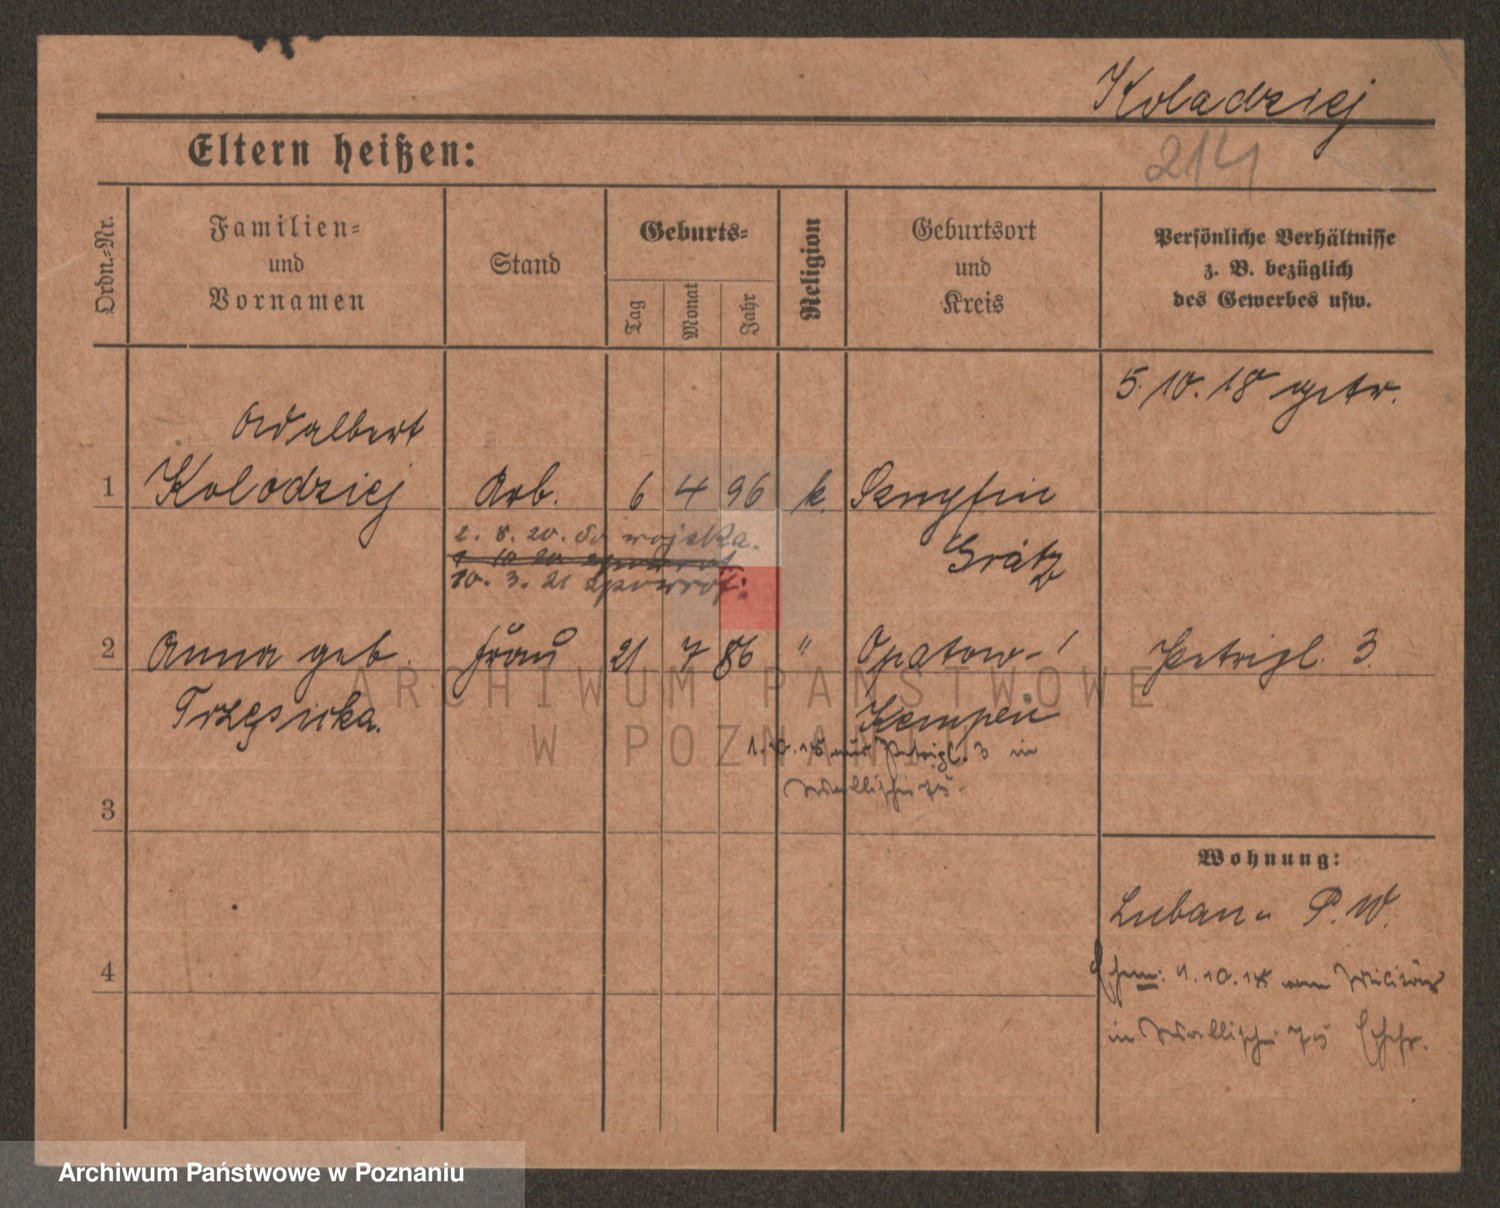 Koladziej
214
Eltern heißen:
Ordn.-Nr.
Familien-
und
Vornamen
Stand
Geburts-
Tag
Monat
Jahr
Religion
Geburtsort
und
Kreis
Persönliche Verhältnisse
z. B. bezüglich
des Gewerbes usw.
5.10.18 getr.
Adalbert
1 Kolodziej Arb. 6 4 96 k.
Grätz
2. 8. 20. do wojska.
10. 3. 21 zpowrot:
2 Anna geb. Frau 21 7 86 " Opatow- Petrigl. 3.
Trzęsicka. Kempen
1.10.18 aus Petrigl. 3 in
Wallischei 75
3
Wohnung:
Luban P. W.
4
Ehem: 1.10.18 vom Militär
in Wallischei 75
ARCHIWUM PAŃSTWOWE
W POZNANIU
Archiwum Państwowe w Poznaniu